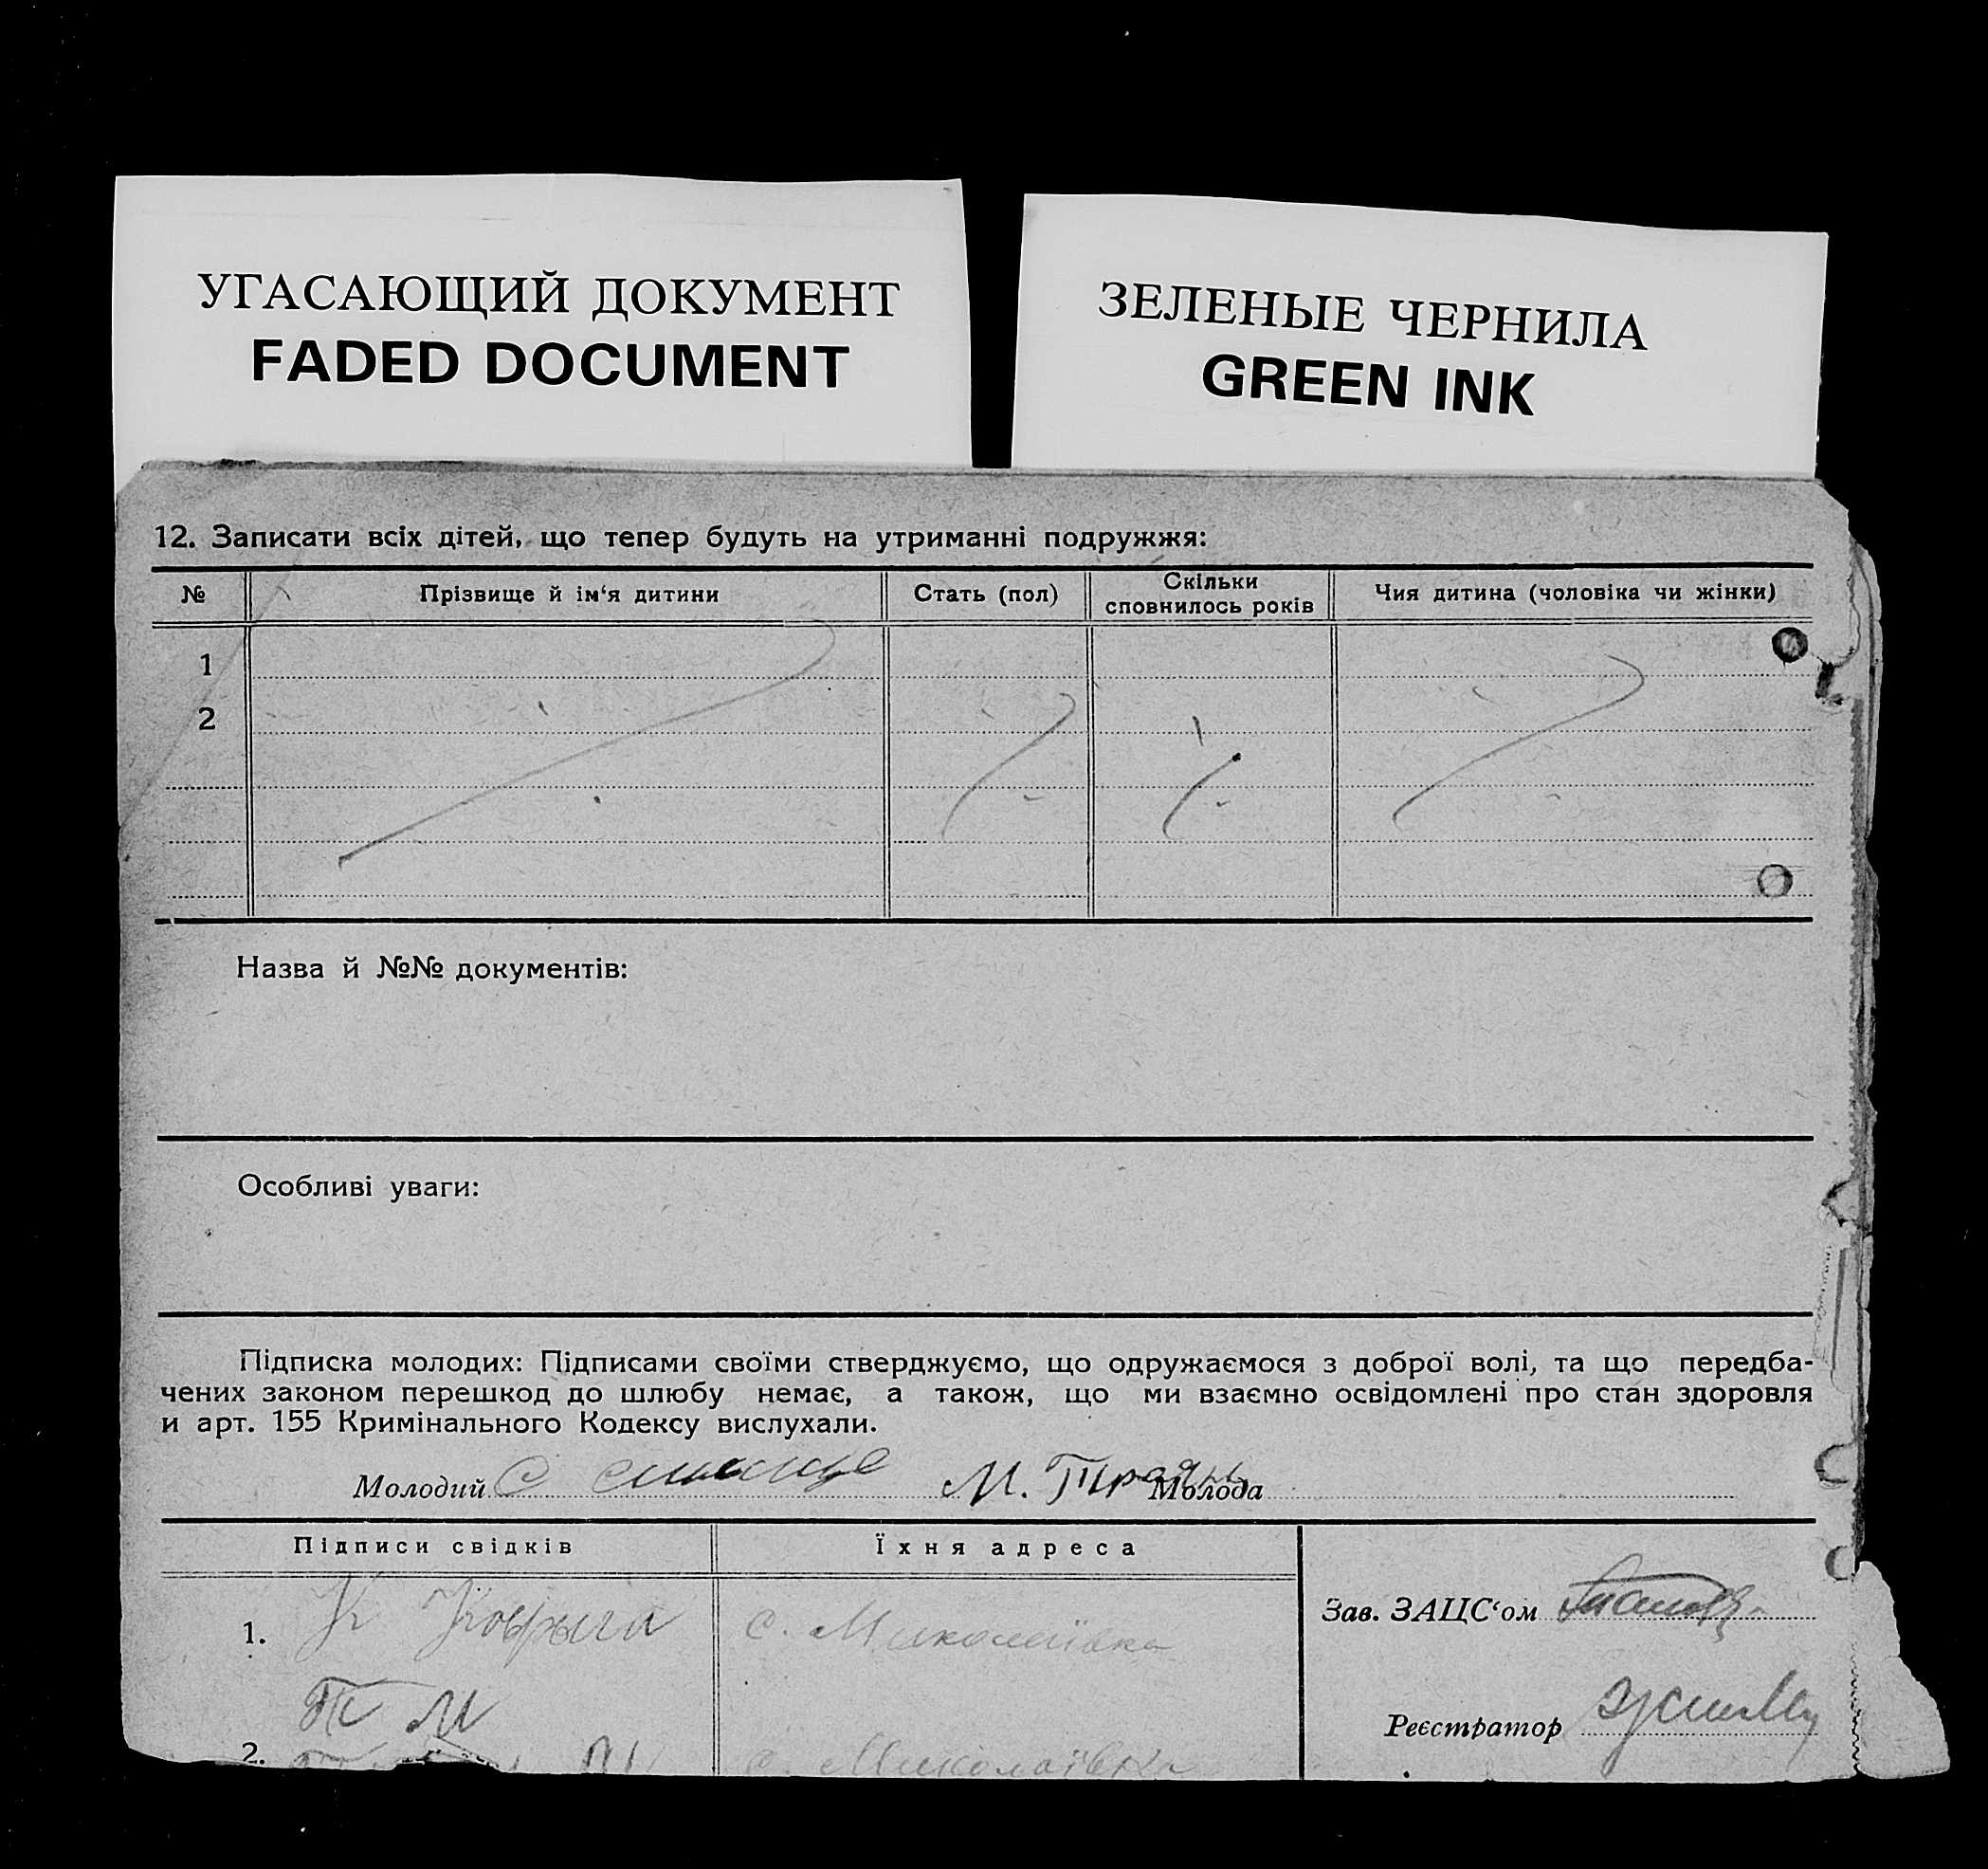 УГАСАЮЩИЙ ДОКУМЕНТ
FADED DOCUMENT
ЗЕЛЕНЫЕ ЧЕРНИЛА
GREEN INK
12. Записати всіх дітей, що тепер будуть на утриманні подружжя:
№ Прізвище й ім'я дитини Стать (пол) Скільки сповнилось років Чия дитина (чоловіка чи жінки)
1
2
Назва й №№ документів:
Особливі уваги:
Підписка молодих: Підписами своїми стверджуємо, що одружаємося з доброї волі, та що передба-
чених законом перешкод до шлюбу немає, а також, що ми взаємно освідомлені про стан здоровля
и арт. 155 Кримінального Кодексу вислухали.
Молодий С М. Троян Молода
Підписи свідків Їхня адреса
1. К Коврыга с. Миколаївка
Зав. ЗАЦС'ом
Реєстратор
2. с. Миколаївка